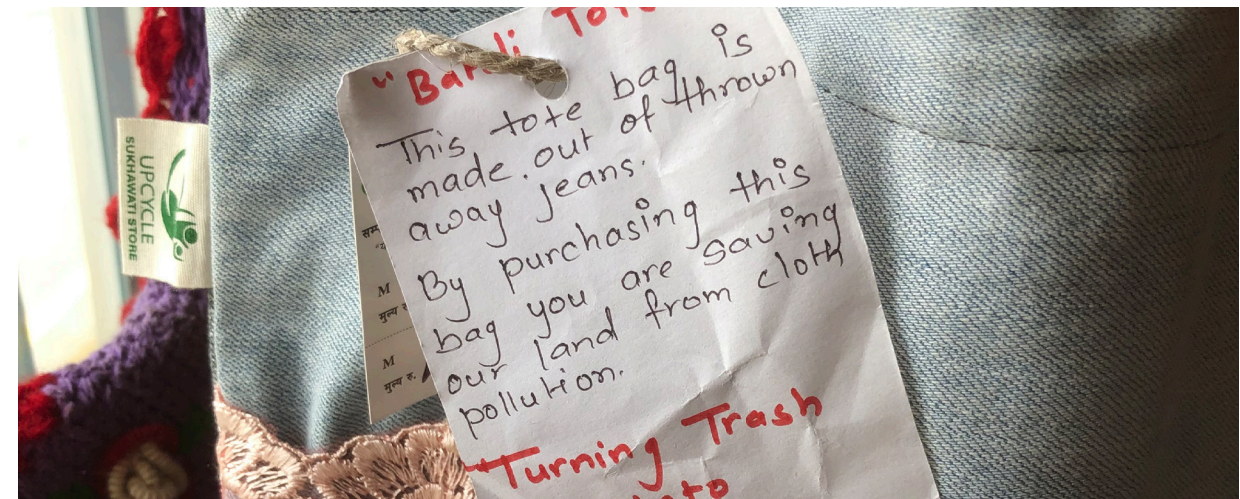 UPCYCLE
SUKHAWATI STORE
M
मूल्य रु.
M
मूल्य रु.
This tote bag is
made out of thrown
away jeans.
By purchasing this
bag you are saving
our land from cloth
pollution.
"Turning Trash
into